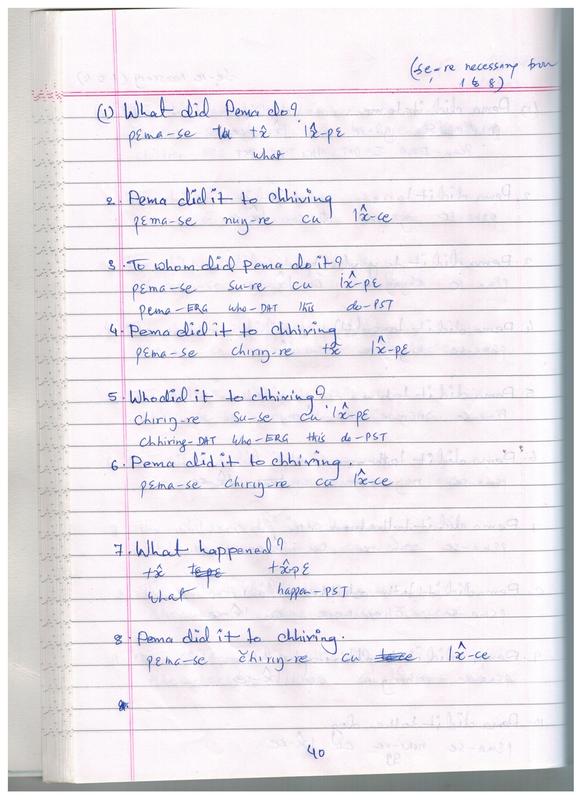 (se-re necessary from
1 to 8)
(1) What did Pema do?
pɛma-se tx̂ lx̂-pɛ
what
2. Pema did it to chhiring
pɛma-se nuŋ-re cu lx̂-ce
3. To whom did Pema do it?
pɛma-se su-re cu lx̂-pɛ
Pema-ERG who-DAT this do-PST
4. Pema did it to chhiring
pɛma-se chiriŋ-re tx̂ lx̂-pɛ
5. Who did it to chhiring?
chiriŋ-re su-se cu lx̂-pɛ
Chhiring-DAT who-ERG this do-PST
6. Pema did it to chhiring.
pɛma-se chiriŋ-re cu lx̂-ce
7. What happened?
tx̂ tx̂pɛ
what happen-PST
8. Pema did it to chhiring.
pɛma-se chiriŋ-re cu lx̂-ce
40